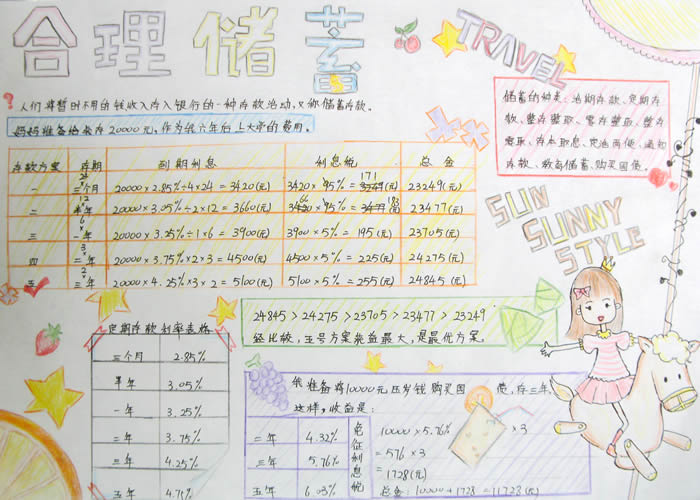 合理储蓄
TRAVEL
?人们将暂时不用的钱收入存入银行的一种存款活动,又称储蓄存款。
妈妈准备给我存20000元,作为我六年后上大学的费用。
储蓄的种类:活期存款、定期存
款、整存整取、零存整取、整存
零取、存本取息、定活两便、通知
存款、教育储蓄、购买国债。
SUN
SUNNY
STYLE
存款方案 存期 到期利息 利息税 总金
一 24× 三个月 20000×2.85%÷4×24=3420(元) 3420×5%=171(元) 23249(元)
二 12× 半年 20000×3.05%÷2×12=3660(元) 3660×5%=183(元) 23477(元)
三 6× 一年 20000×3.25%÷1×6=3900(元) 3900×5%=195(元) 23705(元)
四 3× 二年 20000×3.75%×2×3=4500(元) 4500×5%=225(元) 24275(元)
五 2× 三年 20000×4.25%×3×2=5100(元) 5100×5%=255(元) 24845(元)
24845>24275>23705>23477>23249
经比较,五号方案收益最大,是最优方案。
定期存款利率表格
三个月 2.85%
半年 3.05%
一年 3.25%
二年 3.75%
三年 4.25%
五年 4.75%
我准备将10000元压岁钱购买国债,存三年,
这样,收益是:
一年 4.32%
三年 5.76%
五年 6.03%
免征利息税
10000×5.76%×3
=576×3
=1728(元)
总金:10000+1728=11728(元)